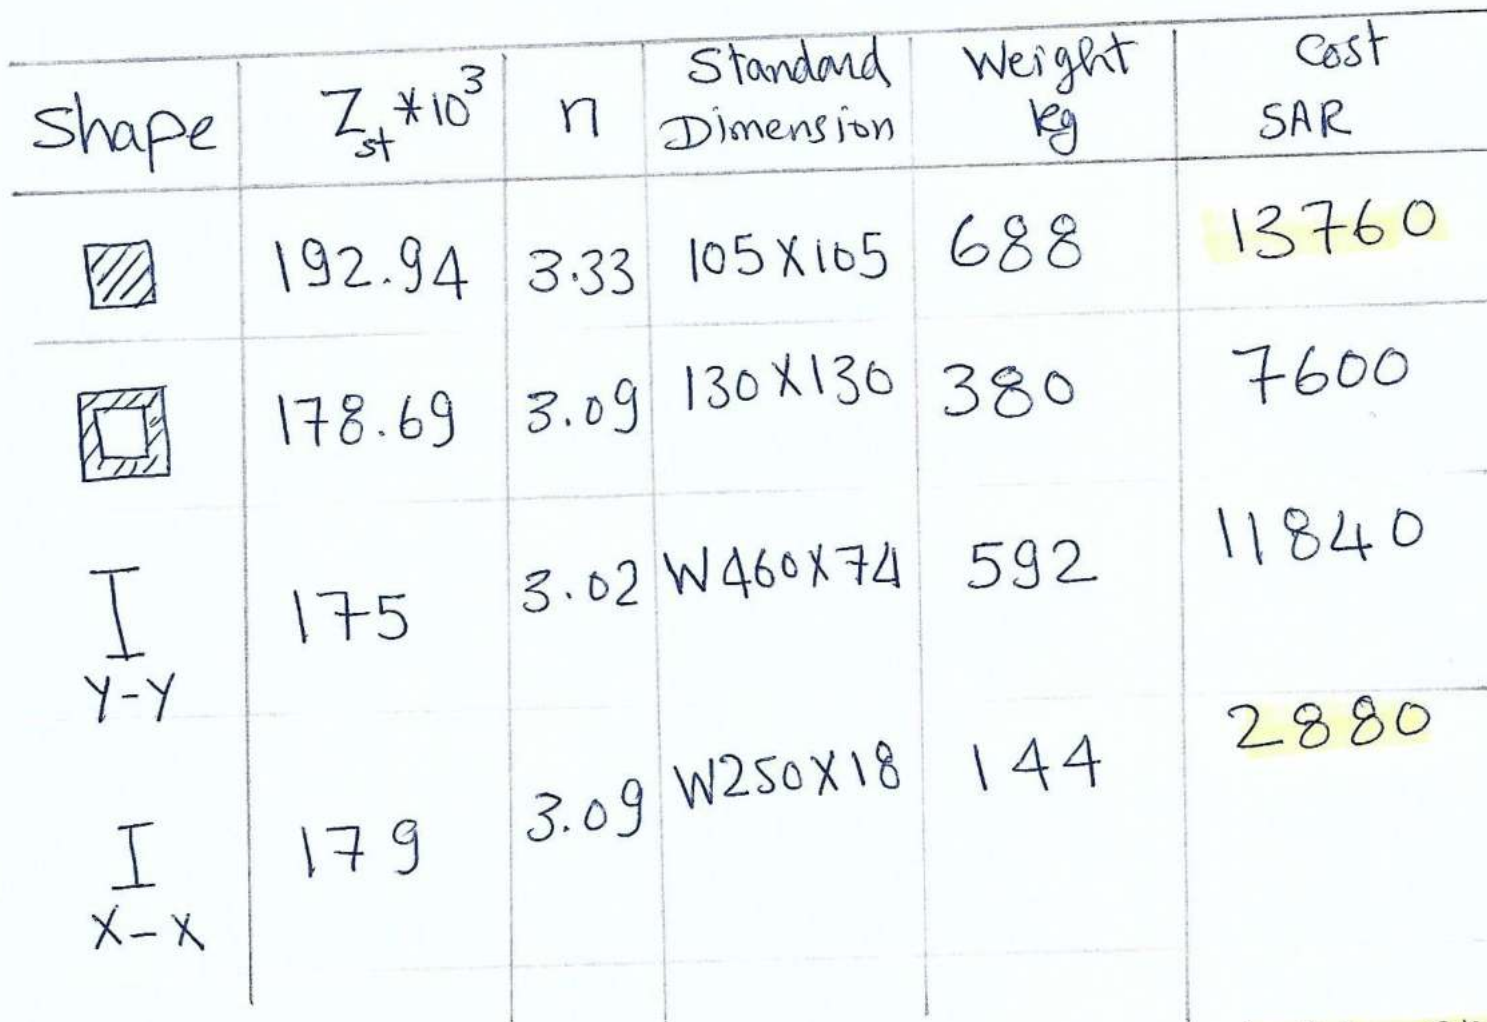 Shape Z_st *10^3 n Standard Dimension Weight kg Cost SAR
192.94 3.33 105X105 688 13760
178.69 3.09 130X130 380 7600
Y-Y 175 3.02 W460X74 592 11840
X-X 179 3.09 W250X18 144 2880